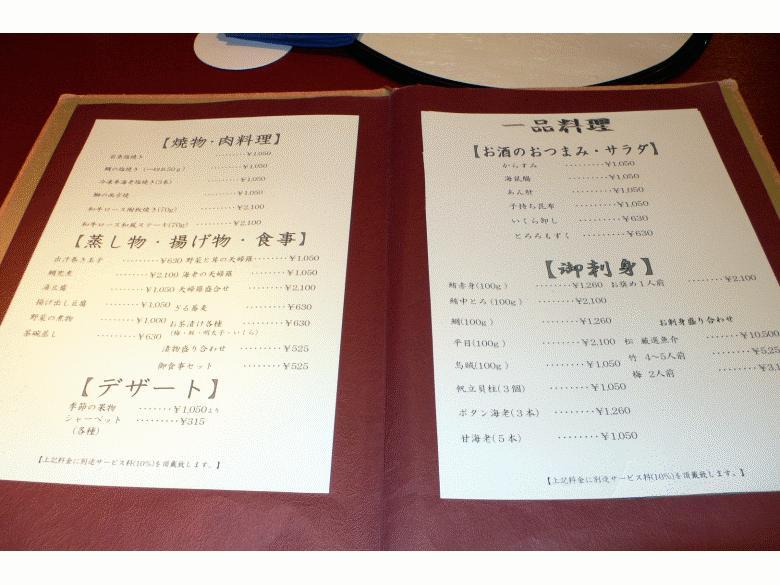 【焼物・肉料理】
若魚塩焼き ・・・・・・・・¥1,050
鯛の塩焼き (一切れ50g) ・・・・・・・・¥1,050
冷凍車海老塩焼き(3本) ・・・・・・・・¥1,050
鰤の西京焼 ・・・・・・・・¥1,050
和牛ロース陶板焼き(70g) ・・・・・・・・¥2,100
和牛ロース和風ステーキ(70g) ・・・・・・・・¥2,100
【蒸し物・揚げ物・食事】
出汁巻き玉子 ・・・・・・・・¥630
鯛兜煮 ・・・・・・・・¥2,100
湯豆腐 ・・・・・・・・¥1,050
揚げ出し豆腐 ・・・・・・・・¥1,050
野菜の煮物 ・・・・・・・・¥1,000
茶碗蒸し ・・・・・・・・¥630
野菜と茸の天婦羅・・・・・・・・¥1,050
海老の天婦羅 ・・・・・・・・¥1,050
天婦羅盛合せ ・・・・・・・・¥2,100
ざる蕎麦 ・・・・・・・・¥630
お茶漬け各種 ・・・・・・・・¥630
(梅・鮭・明太子・いくら)
漬物盛り合わせ ・・・・・・¥525
御食事セット ・・・・・・¥525
【デザート】
季節の果物 ・・・・・・・¥1,050より
シャーベット ・・・・・・・・・¥315
(各種)
【上記料金に別途サービス料(10%)を頂戴致します。】
一品料理
【お酒のおつまみ・サラダ】
からすみ ・・・・・・・・¥1,050
海鼠腸 ・・・・・・・・¥1,050
あん肝 ・・・・・・・・¥1,050
子持ち昆布 ・・・・・・・・¥1,050
いくら卸し ・・・・・・・・¥630
とろろもずく ・・・・・・・・¥630
【御刺身】
鮪赤身(100g) ・・・・・・・・¥1,260
鮪中とろ(100g) ・・・・・・・・¥2,100
鯛(100g) ・・・・・・・・¥1,260
平目(100g) ・・・・・・・・¥2,100
烏賊(100g) ・・・・・・・・¥1,050
帆立貝柱(3個) ・・・・・・・・¥1,050
ボタン海老(3本) ・・・・・・・・¥1,260
甘海老(5本) ・・・・・・・・¥1,050
お奨め1人前 ・・・・・・・・¥2,100
お刺身盛り合わせ
松 厳選魚介 ・・・・・・・・¥10,500
竹 4〜5人前 ・・・・・・・・¥5,25
梅 2人前 ・・・・・・・・¥3,1
【上記料金に別途サービス料(10%)を頂戴致します。】